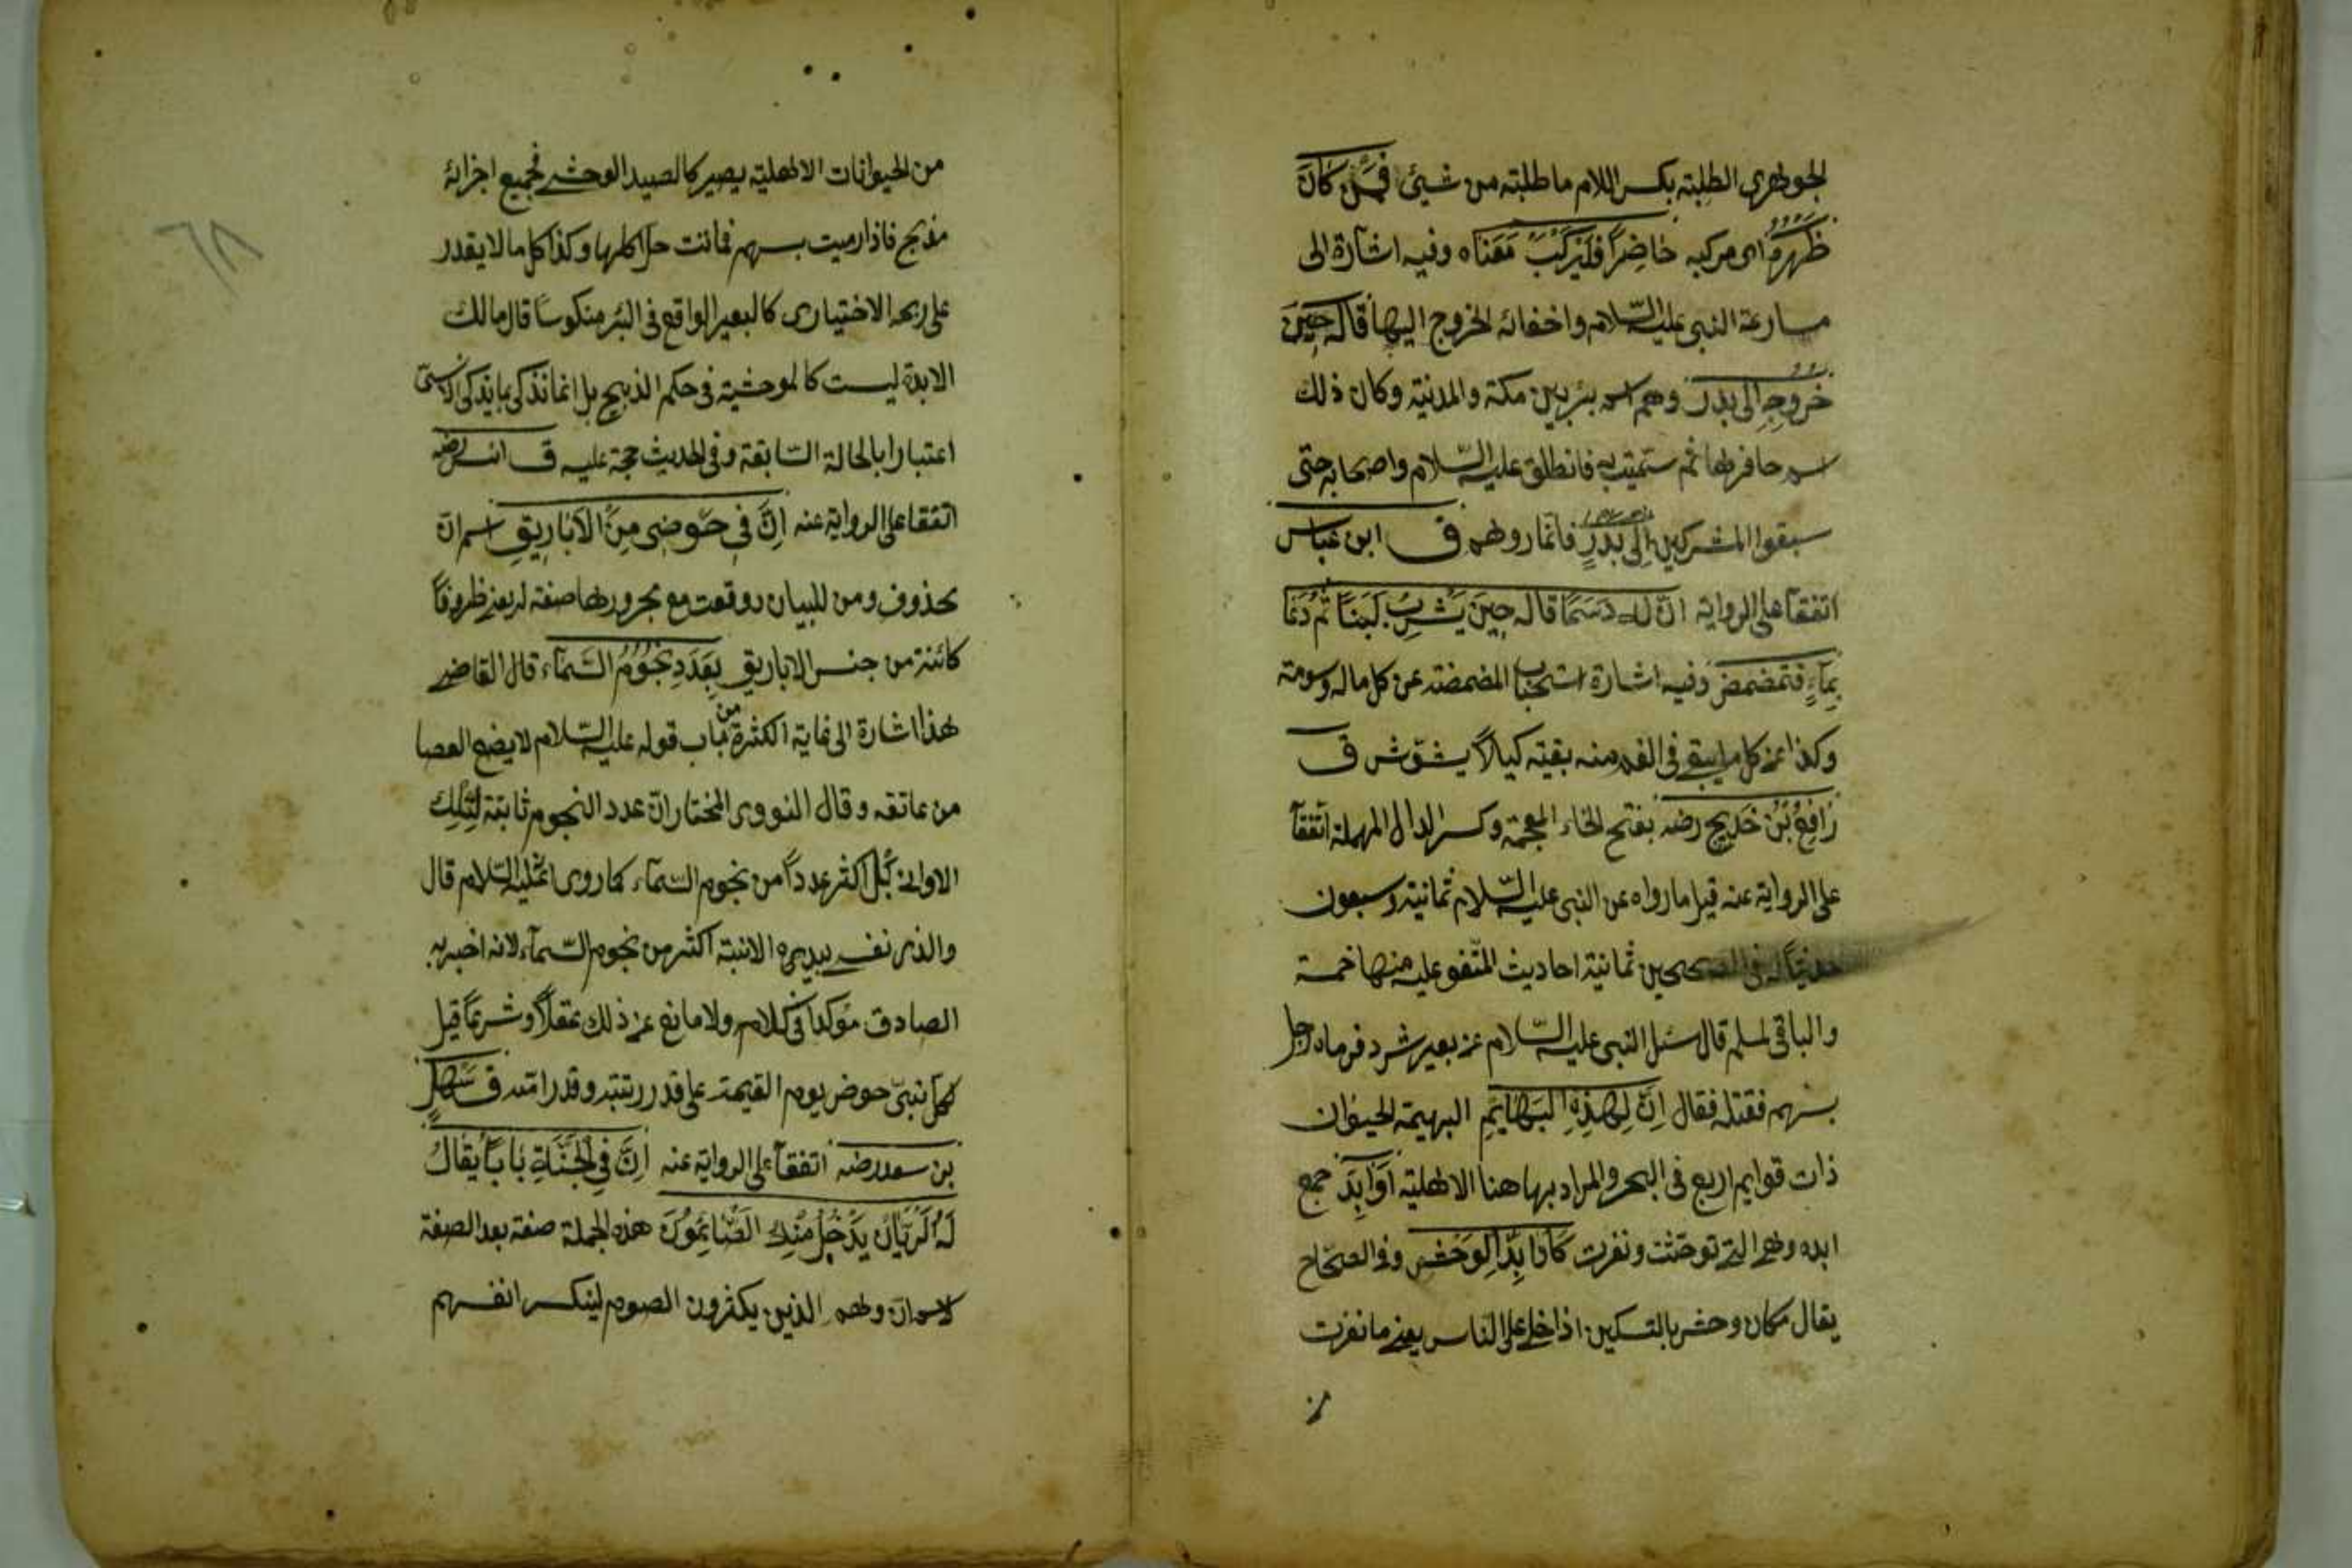 الجوهري الطلبة بكسر اللام ما طلبته من شيئ فمن كان
ظهره اى مركبه حاضرا فليركب معناه وفيه اشارة الى
مسارعة النبى عليه السّلام واخفائه الخروج اليها قاله حين
خروجه الى بدر وهى اسم بئر بين مكة والمدينة وكان ذلك
اسم حافرها ثم سميت به فانطلق عليه السّلام واصحابه حتى
سبقوا المشركين الى بدر ف ابن عباس
اتفقا على الرواية انّ له دسما قاله حين يشرب لبنا ثم دعا
بماء فتمضمض وفيه اشارة استحباب المضمضة عن كل ماله دسومة
وكذا عن كل ما يبقى فى الفم منه بقية كيلا يشوش ق
رافع بن خديج رضه بفتح الخاء المعجمة وكسر الدال المهملة اتفقا
على الرواية عنه قيل ما رواه عن النبى عليه السّلام ثمانية وسبعون
حديثا له فى الصحيحين ثمانية احاديث المتفق عليه منها خمسة
والباقى لمسلم قال سئل النبى عليه السّلام عن بعير شرد فرماه رجل
بسهم فقتله فقال انّ لهذه البهايم البهيمة الحيوان
ذات قوايم اربع فى البحر والمراد بها هنا الاهلية اوابد جمع
ابده وهى التى توحشت ونفرت كاوابد الوحش وفى الصحاح
يقال مكان وحش بالتسكين اذا خلى على الناس يعنى ما نفرت
من
٦٨
من الحيوانات الاهلية يصير كالصيد الوحشى فجميع اجزائه
مذبح فاذا رميت بسهم فماتت حل اكلها وكذا كل ما لا يقدر
على ربحه الاختيارى كالبعير الواقع فى البئر منكوسا قال مالك
الابدة ليست كالوحشية فى حكم الذبيح بل انما تذكى بما يذكى الانستى
اعتبارا بالحالة السّابقة وفى الحديث حجة عليه ق انس رضه
اتفقا على الرواية عنه إنّ فى حوضى من الاباريق اسم ان
محذوف ومن للبيان وقعت مع مجرورها صفة له يعنى ظروفا
كائنة من جنس الاباريق بعدد نجوم السّمآء قال القاضى
هذا اشارة الى غاية الكثرة من باب قوله عليه السّلام لا يضع العصا
من عاتقه وقال النووى المختار انّ عدد النجوم ثابتة لتلك
الاوانى بل اكثر عددا من نجوم السّمآء كما روى انه عليه السّلام قال
والذى نفسى بيده الانية اكثر من نجوم السّمآء لانه اخبر به
الصادق مؤكدا فى كلام ولا مانع عن ذلك عقلا وشرعا قيل
لكل نبىّ حوض يوم القيمة على قدر رتبته وقدر امته ق سهل
بن سعد رضه اتفقا على الرواية عنه إنّ فى الجنّة بابا يقال
له الريّان يدخل منه الصّائمون هذه الجملة صفة بعد الصفة
لاسم انّ وهم الذين يكثرون الصوم لينكسر انفسهم